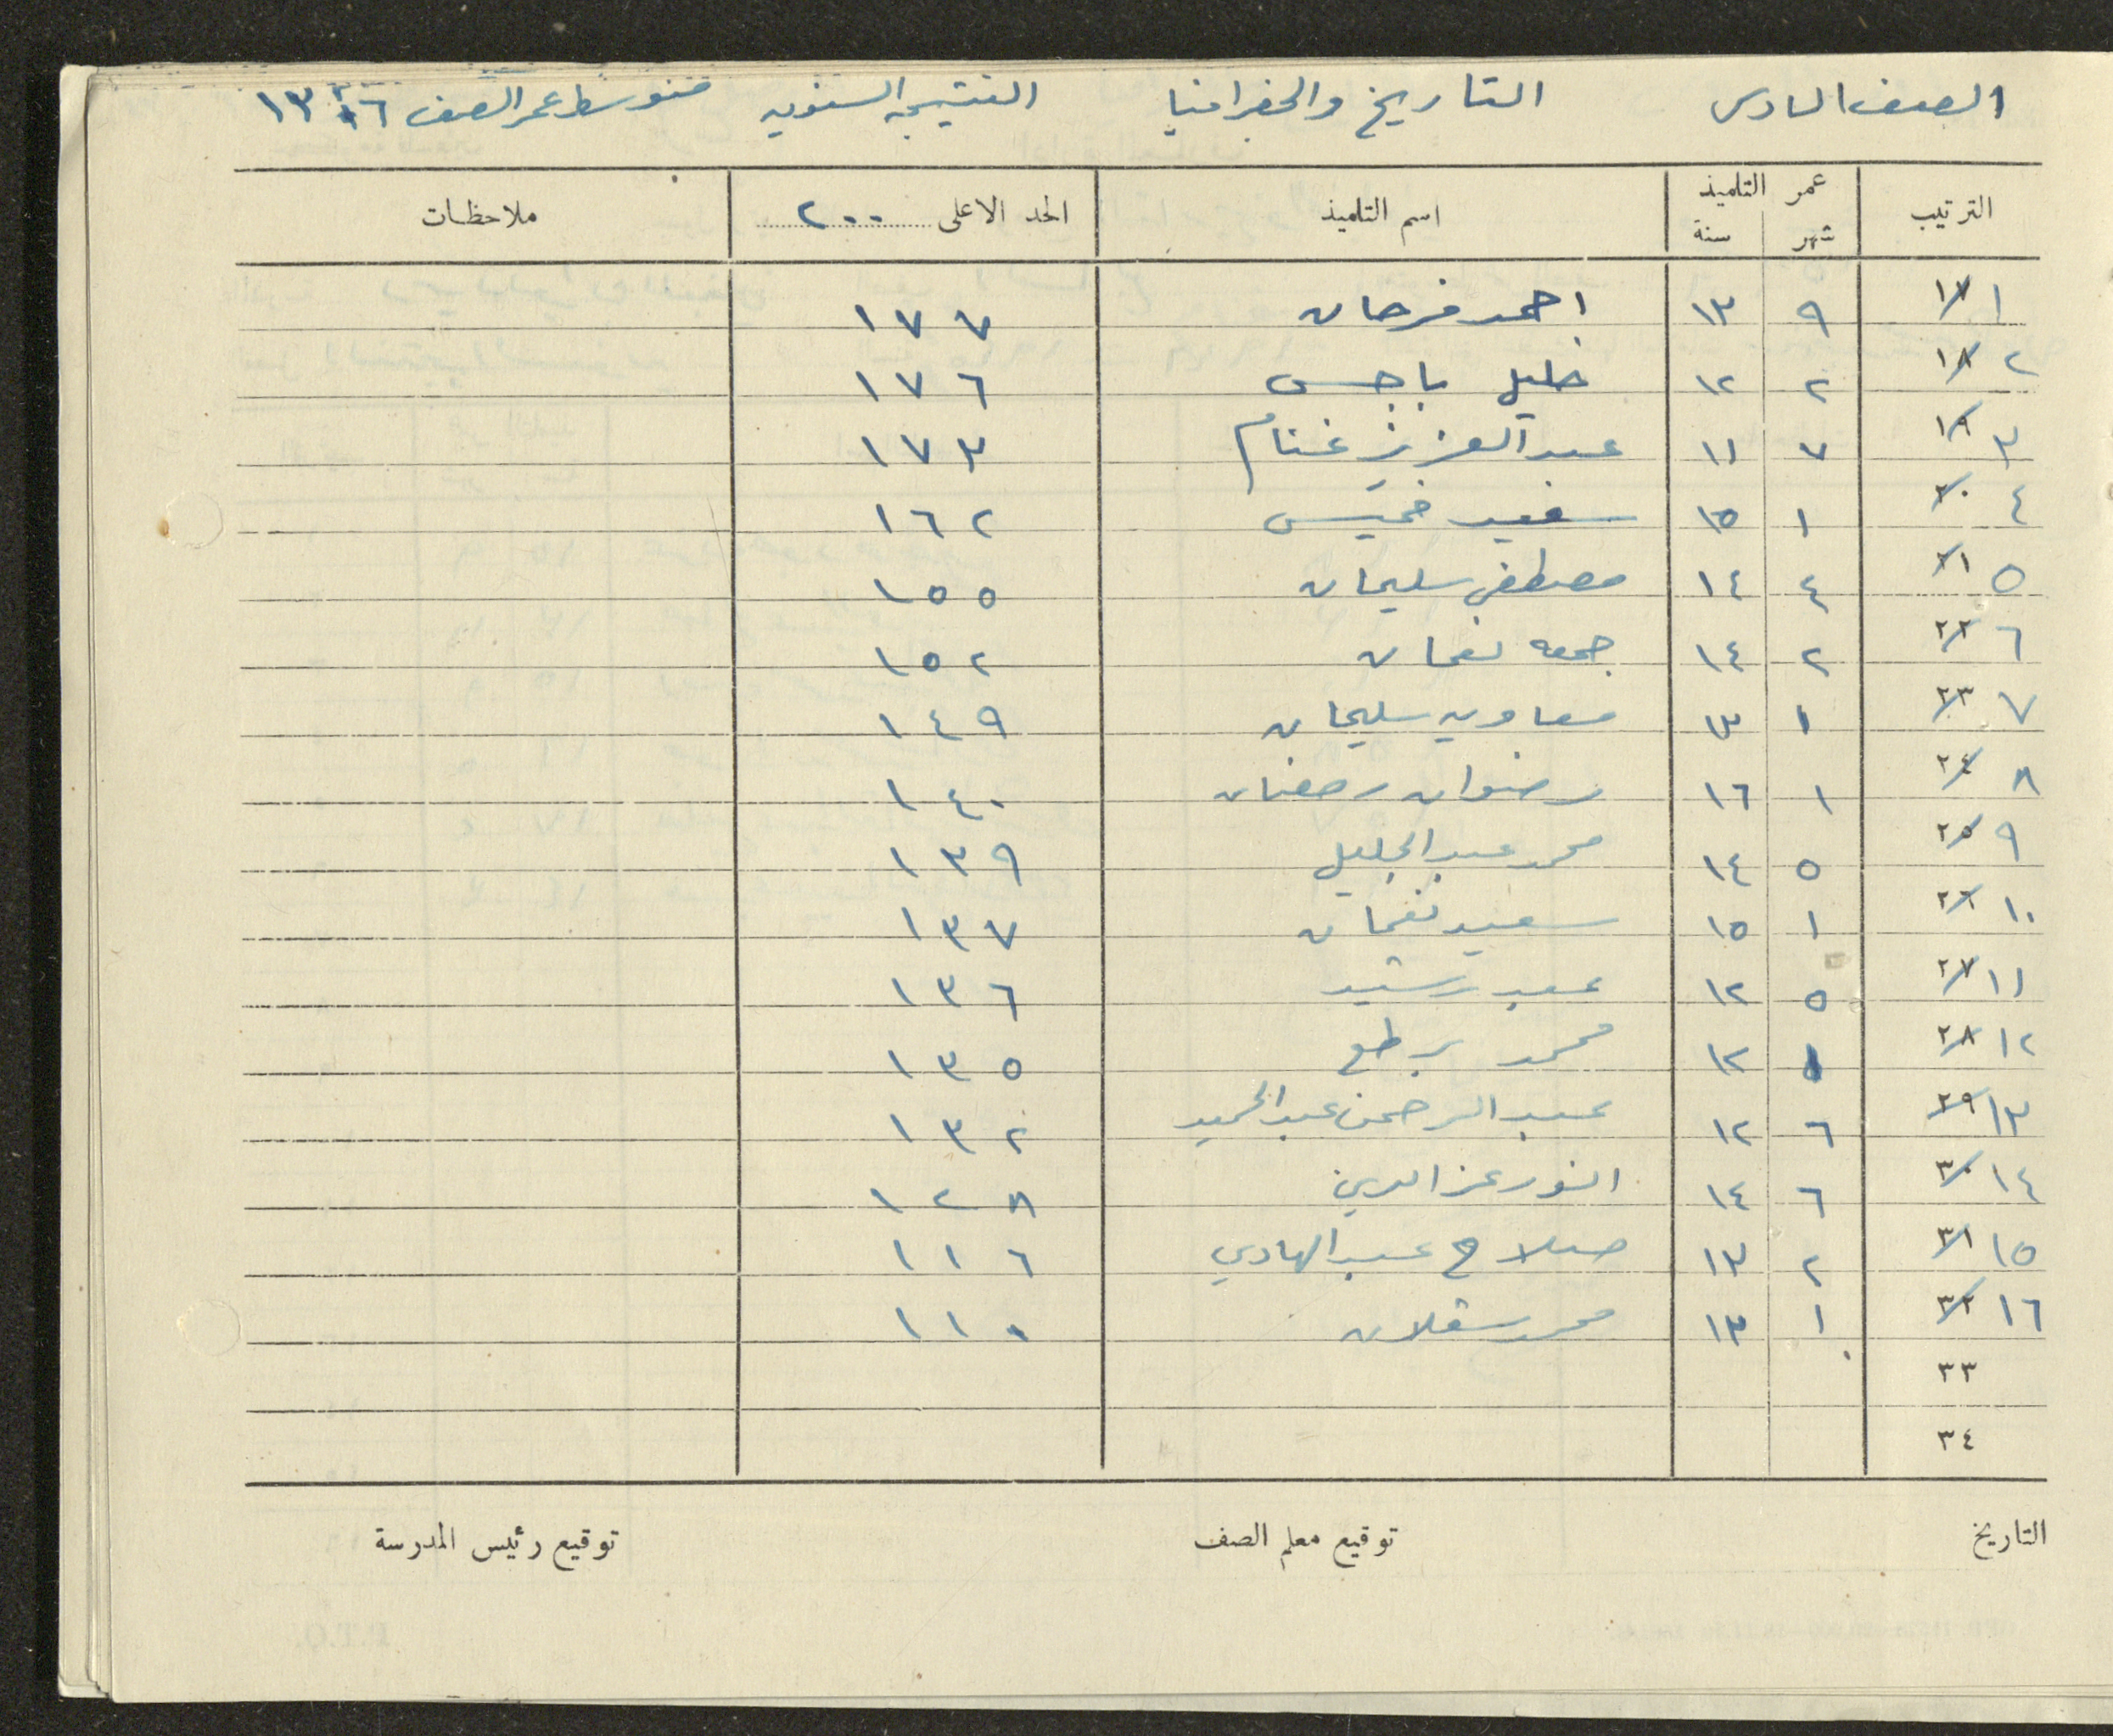 الصف السادس التاريخ والجغرافيا النتيجه السنويه متوسط عمر الصف
الترتيب عمر التلميذ اسم التلميذ الحد الاعلى ٢٠٠ ملاحظات
شهر سنة
١ ١٧ ٩ ١٣ احمد فرحان ١٧٧
٢ ١٨ ٢ ١٢ خليل باجس ١٧٦
٣ ١٩ ٧ ١١ عبد العزيز غنام ١٧٣
٤ ٢٠ ١ ١٥ سعيد خميس ١٦٢
٥ ٢١ ٤ ١٤ مصطفى سليمان ١٥٥
٦ ٢٢ ٢ ١٤ جمعه نعمان ١٥٢
٧ ٢٣ ١ ١٣ معاويه سليمان ١٤٩
٨ ٢٤ ١ ١٦ رضوان رمضان ١٤٠
٩ ٢٥ ٥ ١٤ محمد عبد الجليل ١٣٩
١٠ ٢٦ ١ ١٥ سعيد نعمان ١٣٧
١١ ٢٧ ٥ ١٢ عبد رشيد ١٣٦
١٢ ٢٨ ١٢ محمد برطع ١٣٥
١٣ ٢٩ ٦ ١٢ عبد الرحمن عبد الحميد ١٣٢
١٤ ٣٠ ٦ ١٤ انور عز الدين ١٢٨
١٥ ٣١ ٢ ١٣ صلاح عبد الهادي ١١٦
١٦ ٣٢ ١ ١٣ محمد سقلان ١١٠
٣٣
٣٤
التاريخ توقيع معلم الصف توقيع رئيس المدرسة